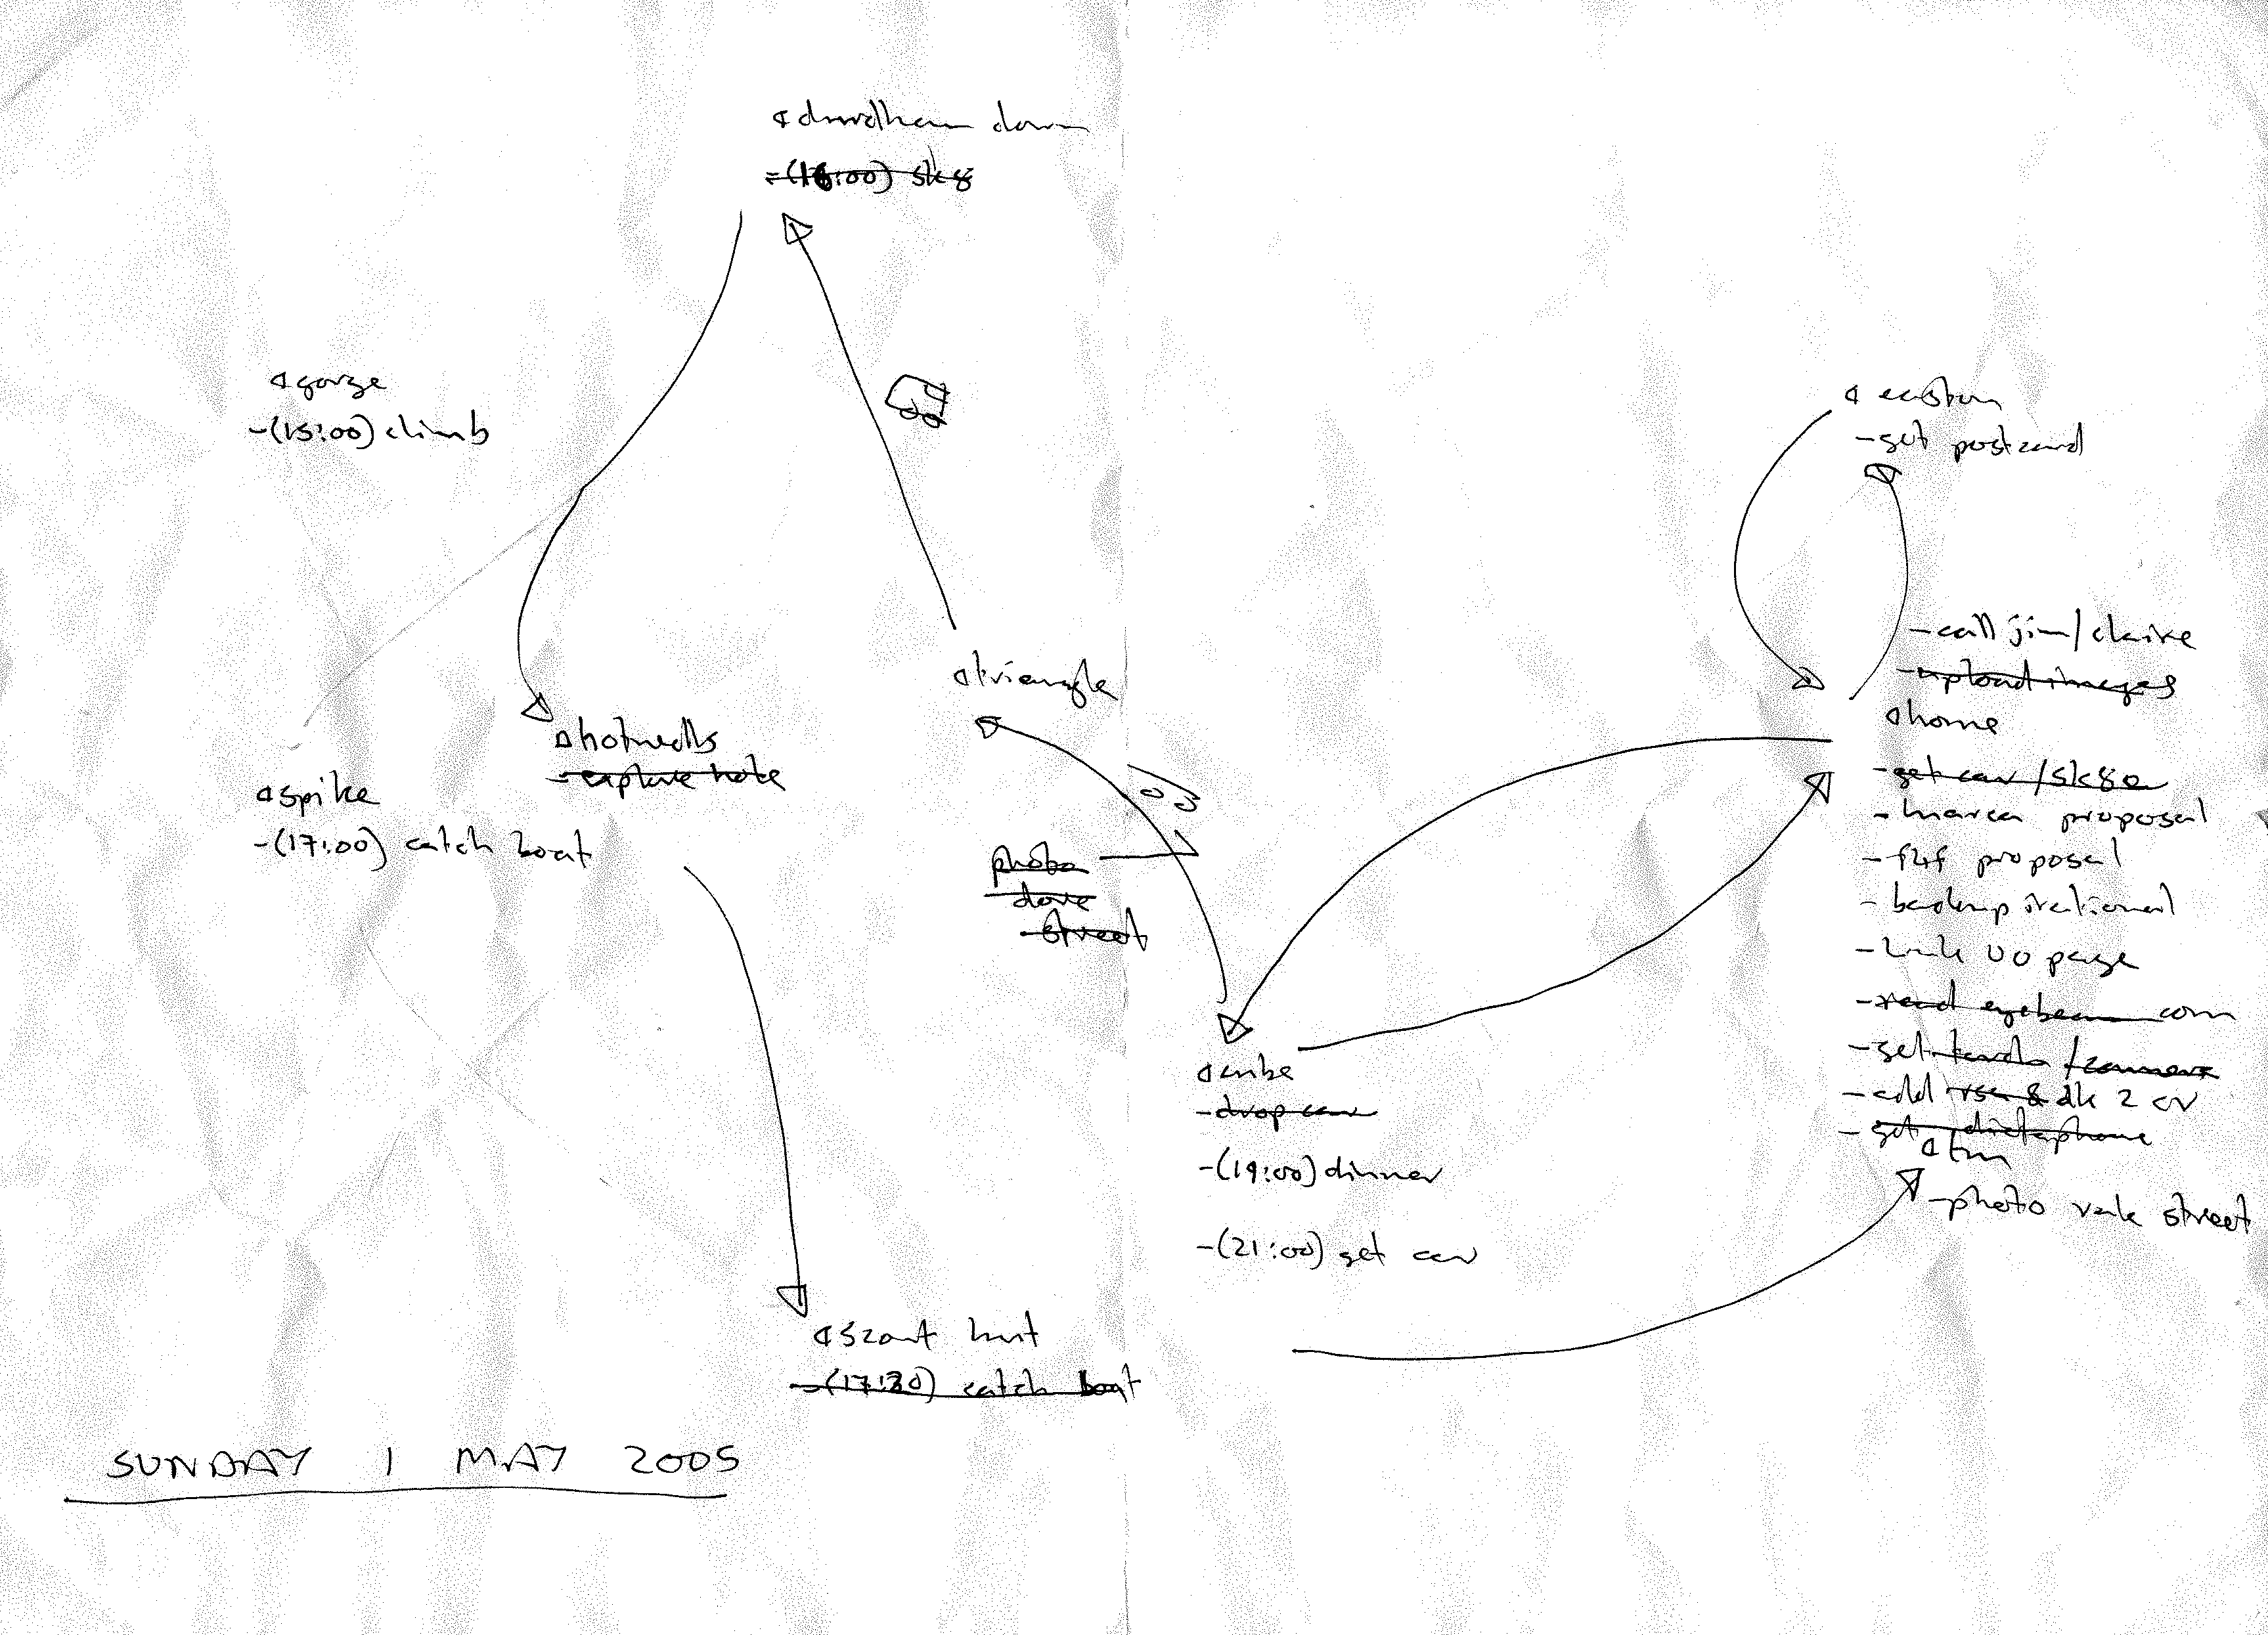 durdham down
-(16:00) sk8
gorge
-(15:00) climb
easton
-get postcard
-call jim/claire
-upload images
home
-get car /sk8
- proposal
-f4f proposal
-backup irational
- page
-read eyebeam com
-get /camera
-add & dk 2 cv
-get dictaphone
tm
-photo vale street
triangle
hotwells
-explore hote
spike
-(17:00) catch boat
photo
dove
street
cube
-drop car
-(19:00) dinner
-(21:00) get car
scout hut
-(17:30) catch boat
SUNDAY 1 MAY 2005